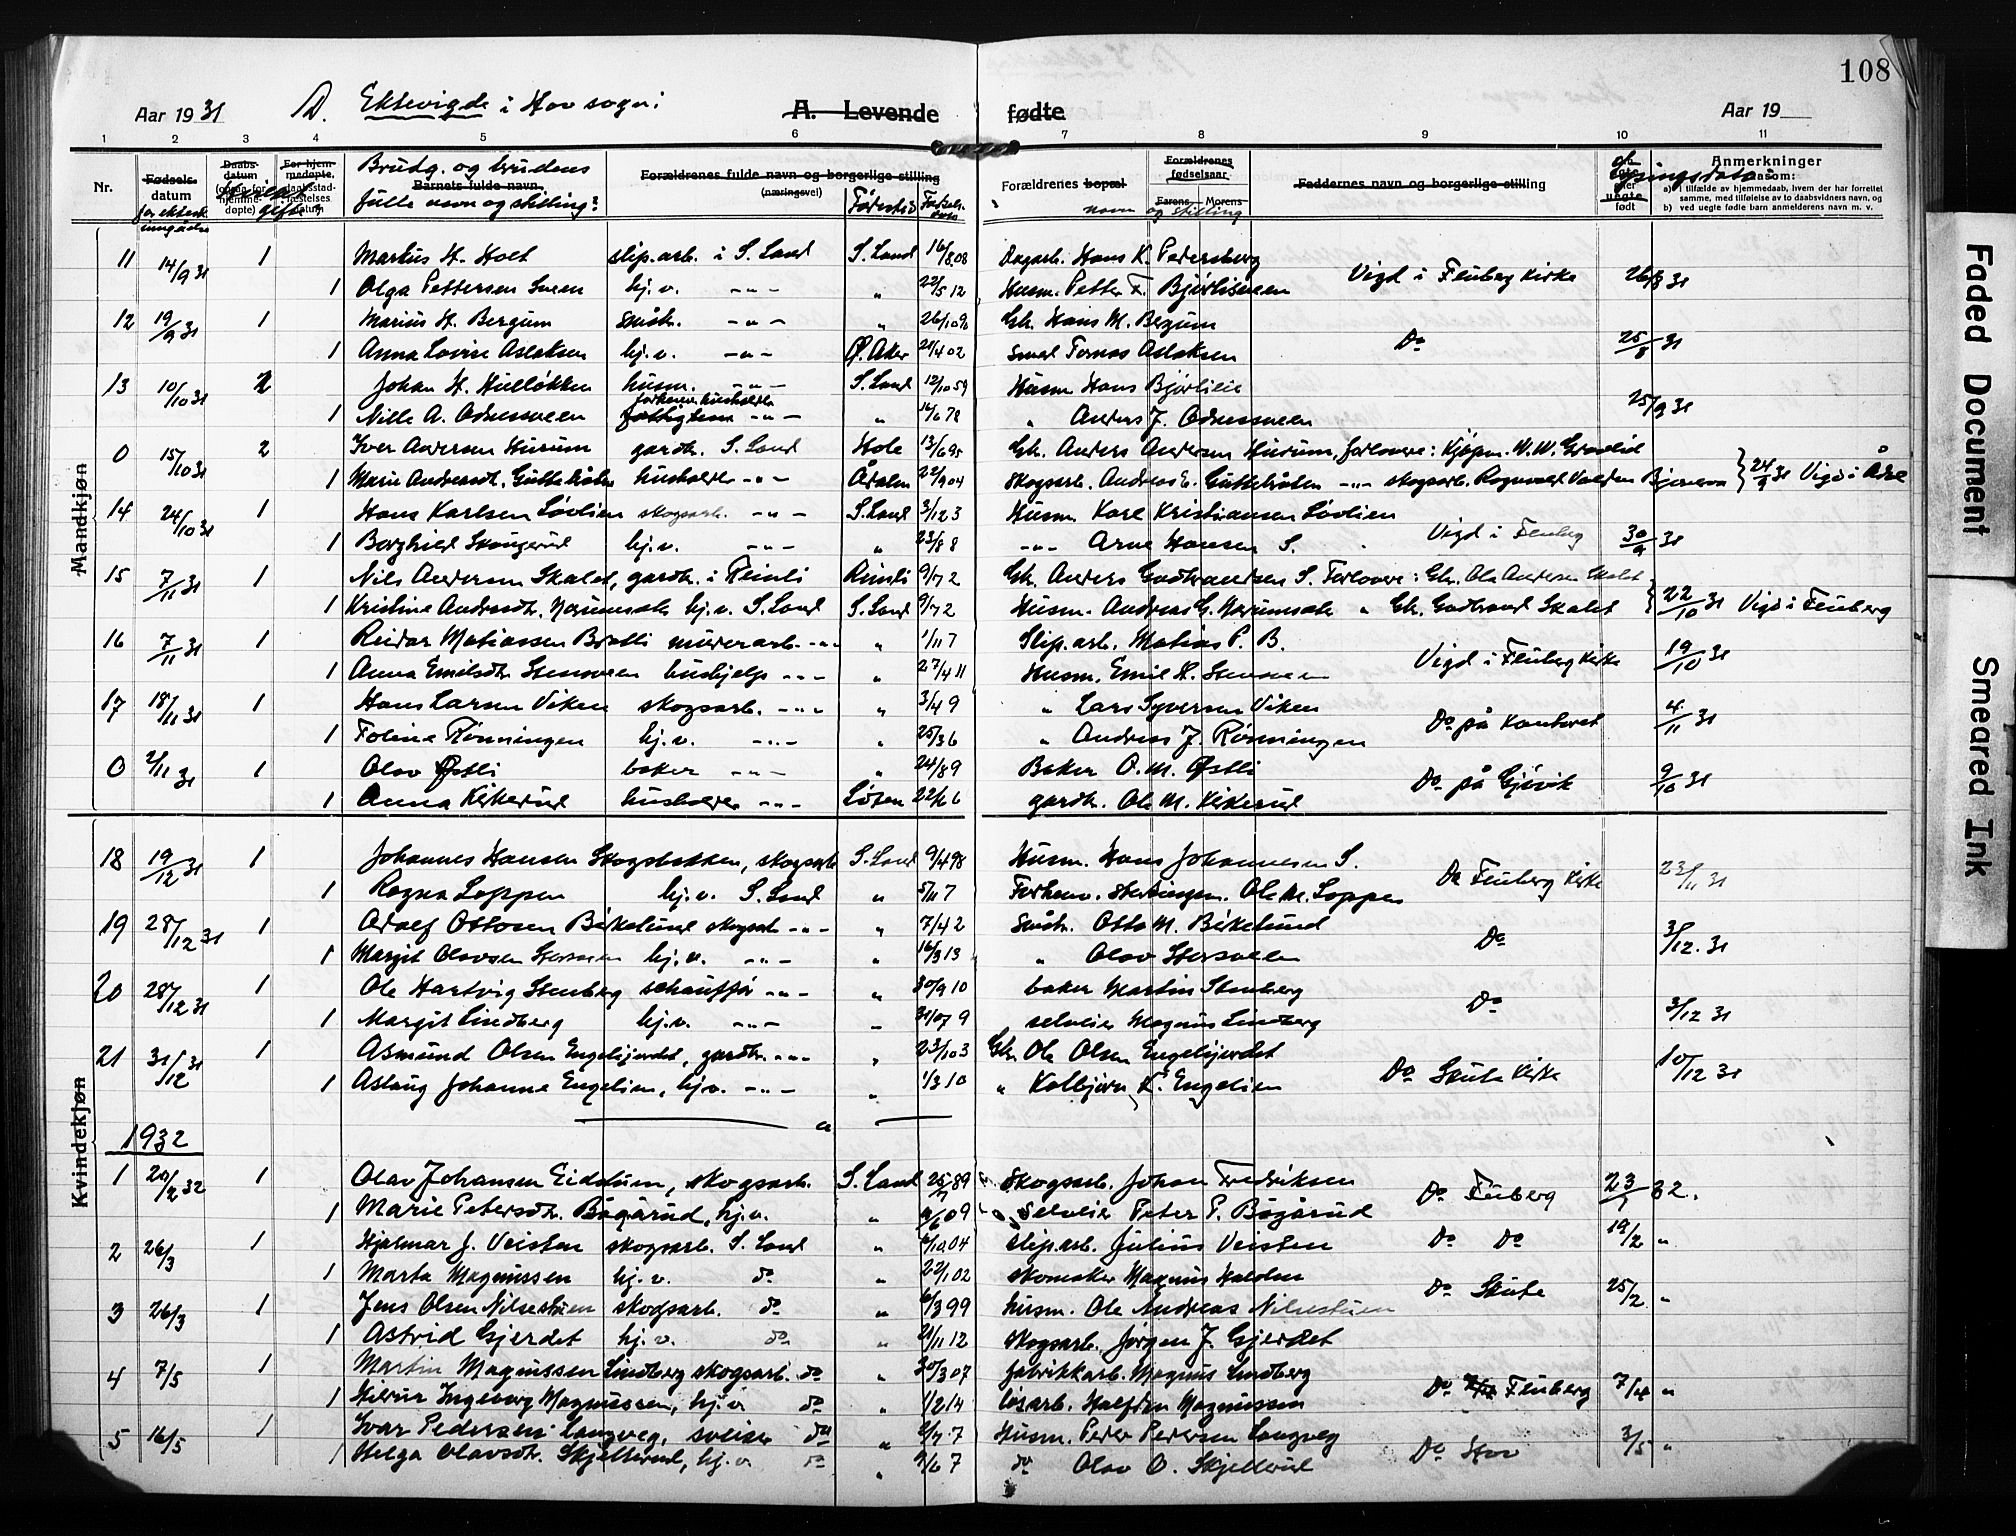 108
Aar 1931 D. Ektevigde i Hov sogn: A. Levende fødte Aar 19
1 2 3 4 5 6 7 8 9 10 11
Nr. Fødsels- datum Daabs- datum For hjem- medøpte, Brudg. og brudens fulle navn og stilling: Barnets fulde navn. Forældrenes fulde navn og borgerlige stilling (næringsvei) Fødested Fødsels- dato Forældrenes bopæl navn og stilling Forældrenes fødselsaar Farens Morens Faddernes navn og borgerlige stilling Lysningsdato Anmerkninger saasom:
a) i tilfælde av hjemmedaab, hvem der har forrettet samme, med tilføielse av to daabsvidners navn, og
b) ved uegte fødte barn anmelderens navn m. v.
Mandkjøn
11 14/9 31 1 Martius H. Holt slip.arb. i S. Land S. Land 16/8.08 Dagarb. Hans K. Pedersberg
1 Olga Pettersen Sveen hj.v. -"- " 22/5 12 Husm. Petter F. Bjørlisveen Vigd i Fluberg Kirke 26/8 31
12 19/9 31 1 Marius H. Bergum småbr. -"- " 26/10 96 Gbr. Hans M. Bergum
1 Anna Lovise Aslaksen hj.v. -"- Ø. Aker 21/4 02 Smed Tomas Aslaksen Do 25/8 31
13 10/10 31 2 Johan H. Hulløkken husm. -"- S. Land 12/10 59 Husm Hans Bjørlilie
1 Nille A. Odnessveen forhenv. husholder -"- " 16/6 78 " Anders J. Odnessveen 25/9 31
0 15/10 31 2 Iver Andersen Hurum gardbr. S. Land Hole 13/6 95 Gbr. Anders Andersen Hurum, forlovere: Kjøpm. W. W. Granlid
1 Marie Andreasdt. Guttelråten husholder -"- Ådalen 22/9 04 Skogsarb. Andreas E. Guttelråten -"- skogsarb. Ragnvald Valdem Bjørnerud 24/9 31 Vigd i Ådal
14 24/10 31 1 Hans Karlsen Løvlien skogsarb. -"- S. Land 3/12 3 Husm. Karl Kristiansen Løvlien
1 Borghild Skaugerud hj.v. -"- " 23/8 8 -"- Arne Hansen S. Vigd i Fluberg 30/9 31
15 7/11 31 1 Nils Andersen Skalet, gardbr. i Reinli Reinli 9/7 2 Gbr. Anders Gudbrandsen S. Forlovere: Gbr. Ola Andersen Skalet
1 Kristine Andreasdt. Norumsæter hj.v. S. Land S. Land 9/7 2 Husm. Andreas G. Norumsæter " Gbr. Gudbrand Skalet 22/10 31 Vigd i Fluberg
16 7/11 31 1 Reidar Matiassen Bratli murerarb. -"- " 1/11 7 Slip.arb. Matias P. B.
1 Anna Emilsdt. Stensveen hushjelp -"- " 27/4 11 Husm. Emil H. Stensveen Vigd i Fluberg Kirke 19/10 31
17 18/11 31 1 Hans Larsen Viken skogsarb. -"- " 3/4 9 " Lars Syversen Viken
1 Toline Rønningen hj.v. -"- " 25/3 6 " Andreas J. Rønningen Do på kontoret 4/11 31
0 2/11 31 1 Olav Østli baker -"- " 24/8 9 Baker O. M. Østli
1 Anna Kirkerud husholder -"- Løten 22/6 6 gardbr. Ole M. Kirkerud Do på Gjøvik 9/10 31
Kvindekjøn
18 19/12 31 1 Johannes Hansen Skogsbakken, skogsarb S. Land 9/4 98 Husm. Hans Johannesen S.
1 Ragna Loppen hj.v. S. Land " 5/11 7 Forhenv. Ole M. Loppen Do Fluberg Kirke 23/11 31
19 28/12 31 1 Adolf Ottosen Birkelund skogsarb -"- " 7/4 2 Småbr. Otto M. Birkelund
1 Margit Olavsen Storsveen hj.v. -"- " 16/3 13 " Olav Storsveen Do 3/12. 31
20 28/12 31 1 Ole Hartvig Stenberg schauffør -"- " 30/9 10 baker Martin Stenberg
1 Margit Lindberg hj.v. -"- " 31/07 9 selveier Magnus Lindberg Do 3/12 31
21 31/12 31 1 Asmund Olsen Engelijordet, gardbr. -"- " 23/10 3 Gbr. Ole Olsen Engelijordet
1 Aslaug Johanne Engelien, hj.v. -"- " 1/3 10 " Kolbjørn K. Engelien Do Skute Kirke 10/12 31
1932
1 20/2 32 1 Olav Johansen Eidstuen, skogsarb. S. Land 25/7 89 Skogsarb. Johan Fredriksen
1 Marie Petersdt. Bågårud, hj.v. " 9/6 09 Selveier Peter P. Bågårud Do Fluberg 23/1 32.
2 26/3 1 Hjalmar J. Veisten skogsarb. S. Land " 6/10 04 Slip.arb. Julius Veisten Do Do 19/2 "
1 Marta Magnussen hj.v. do " 22/1 02 skomaker Magnus Halden
3 26/3 1 Jens Olsen Nilsestuen skogsarb. do " 6/3 99 husm. Ole Andreas Nilsestuen Do Skute 25/2 "
1 Astrid Gjerdet hj.v. do " 21/11 12 Skogsarb. Jørgen J. Gjerdet
4 7/5 1 Martin Magnussen Lindberg skogsarb. do " 30/3 07 fabrikkarb. Magnus Lindberg
1 Ingeborg Magnussen, hj.v do " 1/2 14 løsarb. Halfdan Magnussen Do Fluberg 7/4 "
5 16/5 1 Ivar Pedersen Langveg, sveiser do " 2/7 7 Husm. Peder Pedersen Langveg
1 Helga Olavsdt. Skjellerud, hj.v do " 9/6 7 do Olav O. Skjellerud Do Hov 3/5 "
Faded Document
Smeared Ink